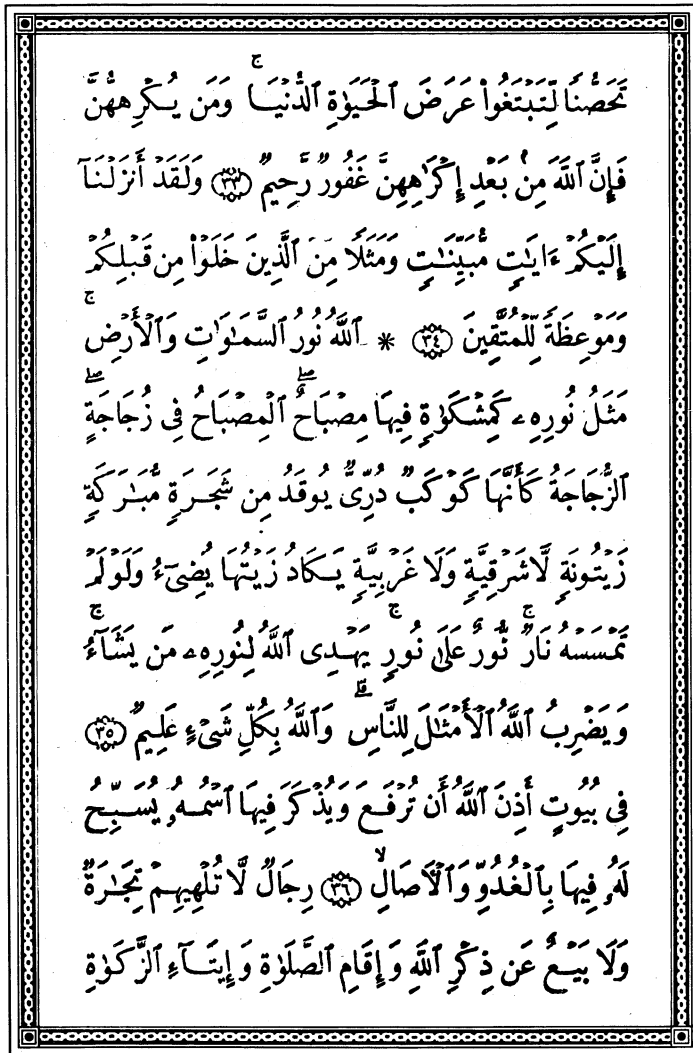 تَحَصُّنًا لِّتَبْتَغُوا۟ عَرَضَ ٱلْحَيَوٰةِ ٱلدُّنْيَا ۚ وَمَن يُكْرِههُّنَّ
فَإِنَّ ٱللَّهَ مِنۢ بَعْدِ إِكْرَٰهِهِنَّ غَفُورٌ رَّحِيمٌ ﴿٣٣﴾ وَلَقَدْ أَنزَلْنَآ
إِلَيْكُمْ ءَايَٰتٍ مُّبَيِّنَٰتٍ وَمَثَلًا مِّنَ ٱلَّذِينَ خَلَوْا۟ مِن قَبْلِكُمْ
وَمَوْعِظَةً لِّلْمُتَّقِينَ ﴿٣٤﴾ * ٱللَّهُ نُورُ ٱلسَّمَٰوَٰتِ وَٱلْأَرْضِ ۚ
مَثَلُ نُورِهِۦ كَمِشْكَوٰةٍ فِيهَا مِصْبَاحٌ ۖ ٱلْمِصْبَاحُ فِى زُجَاجَةٍ ۖ
ٱلزُّجَاجَةُ كَأَنَّهَا كَوْكَبٌ دُرِّىٌّ يُوقَدُ مِن شَجَرَةٍ مُّبَٰرَكَةٍ
زَيْتُونَةٍ لَّا شَرْقِيَّةٍ وَلَا غَرْبِيَّةٍ يَكَادُ زَيْتُهَا يُضِىٓءُ وَلَوْ لَمْ
تَمْسَسْهُ نَارٌ ۚ نُّورٌ عَلَىٰ نُورٍ ۗ يَهْدِى ٱللَّهُ لِنُورِهِۦ مَن يَشَآءُ ۚ
وَيَضْرِبُ ٱللَّهُ ٱلْأَمْثَٰلَ لِلنَّاسِ ۗ وَٱللَّهُ بِكُلِّ شَىْءٍ عَلِيمٌ ﴿٣٥﴾
فِى بُيُوتٍ أَذِنَ ٱللَّهُ أَن تُرْفَعَ وَيُذْكَرَ فِيهَا ٱسْمُهُۥ يُسَبِّحُ
لَهُۥ فِيهَا بِٱلْغُدُوِّ وَٱلْءَاصَالِ ۙ ﴿٣٦﴾ رِجَالٌ لَّا تُلْهِيهِمْ تِجَٰرَةٌ
وَلَا بَيْعٌ عَن ذِكْرِ ٱللَّهِ وَإِقَامِ ٱلصَّلَوٰةِ وَإِيتَآءِ ٱلزَّكَوٰةِ